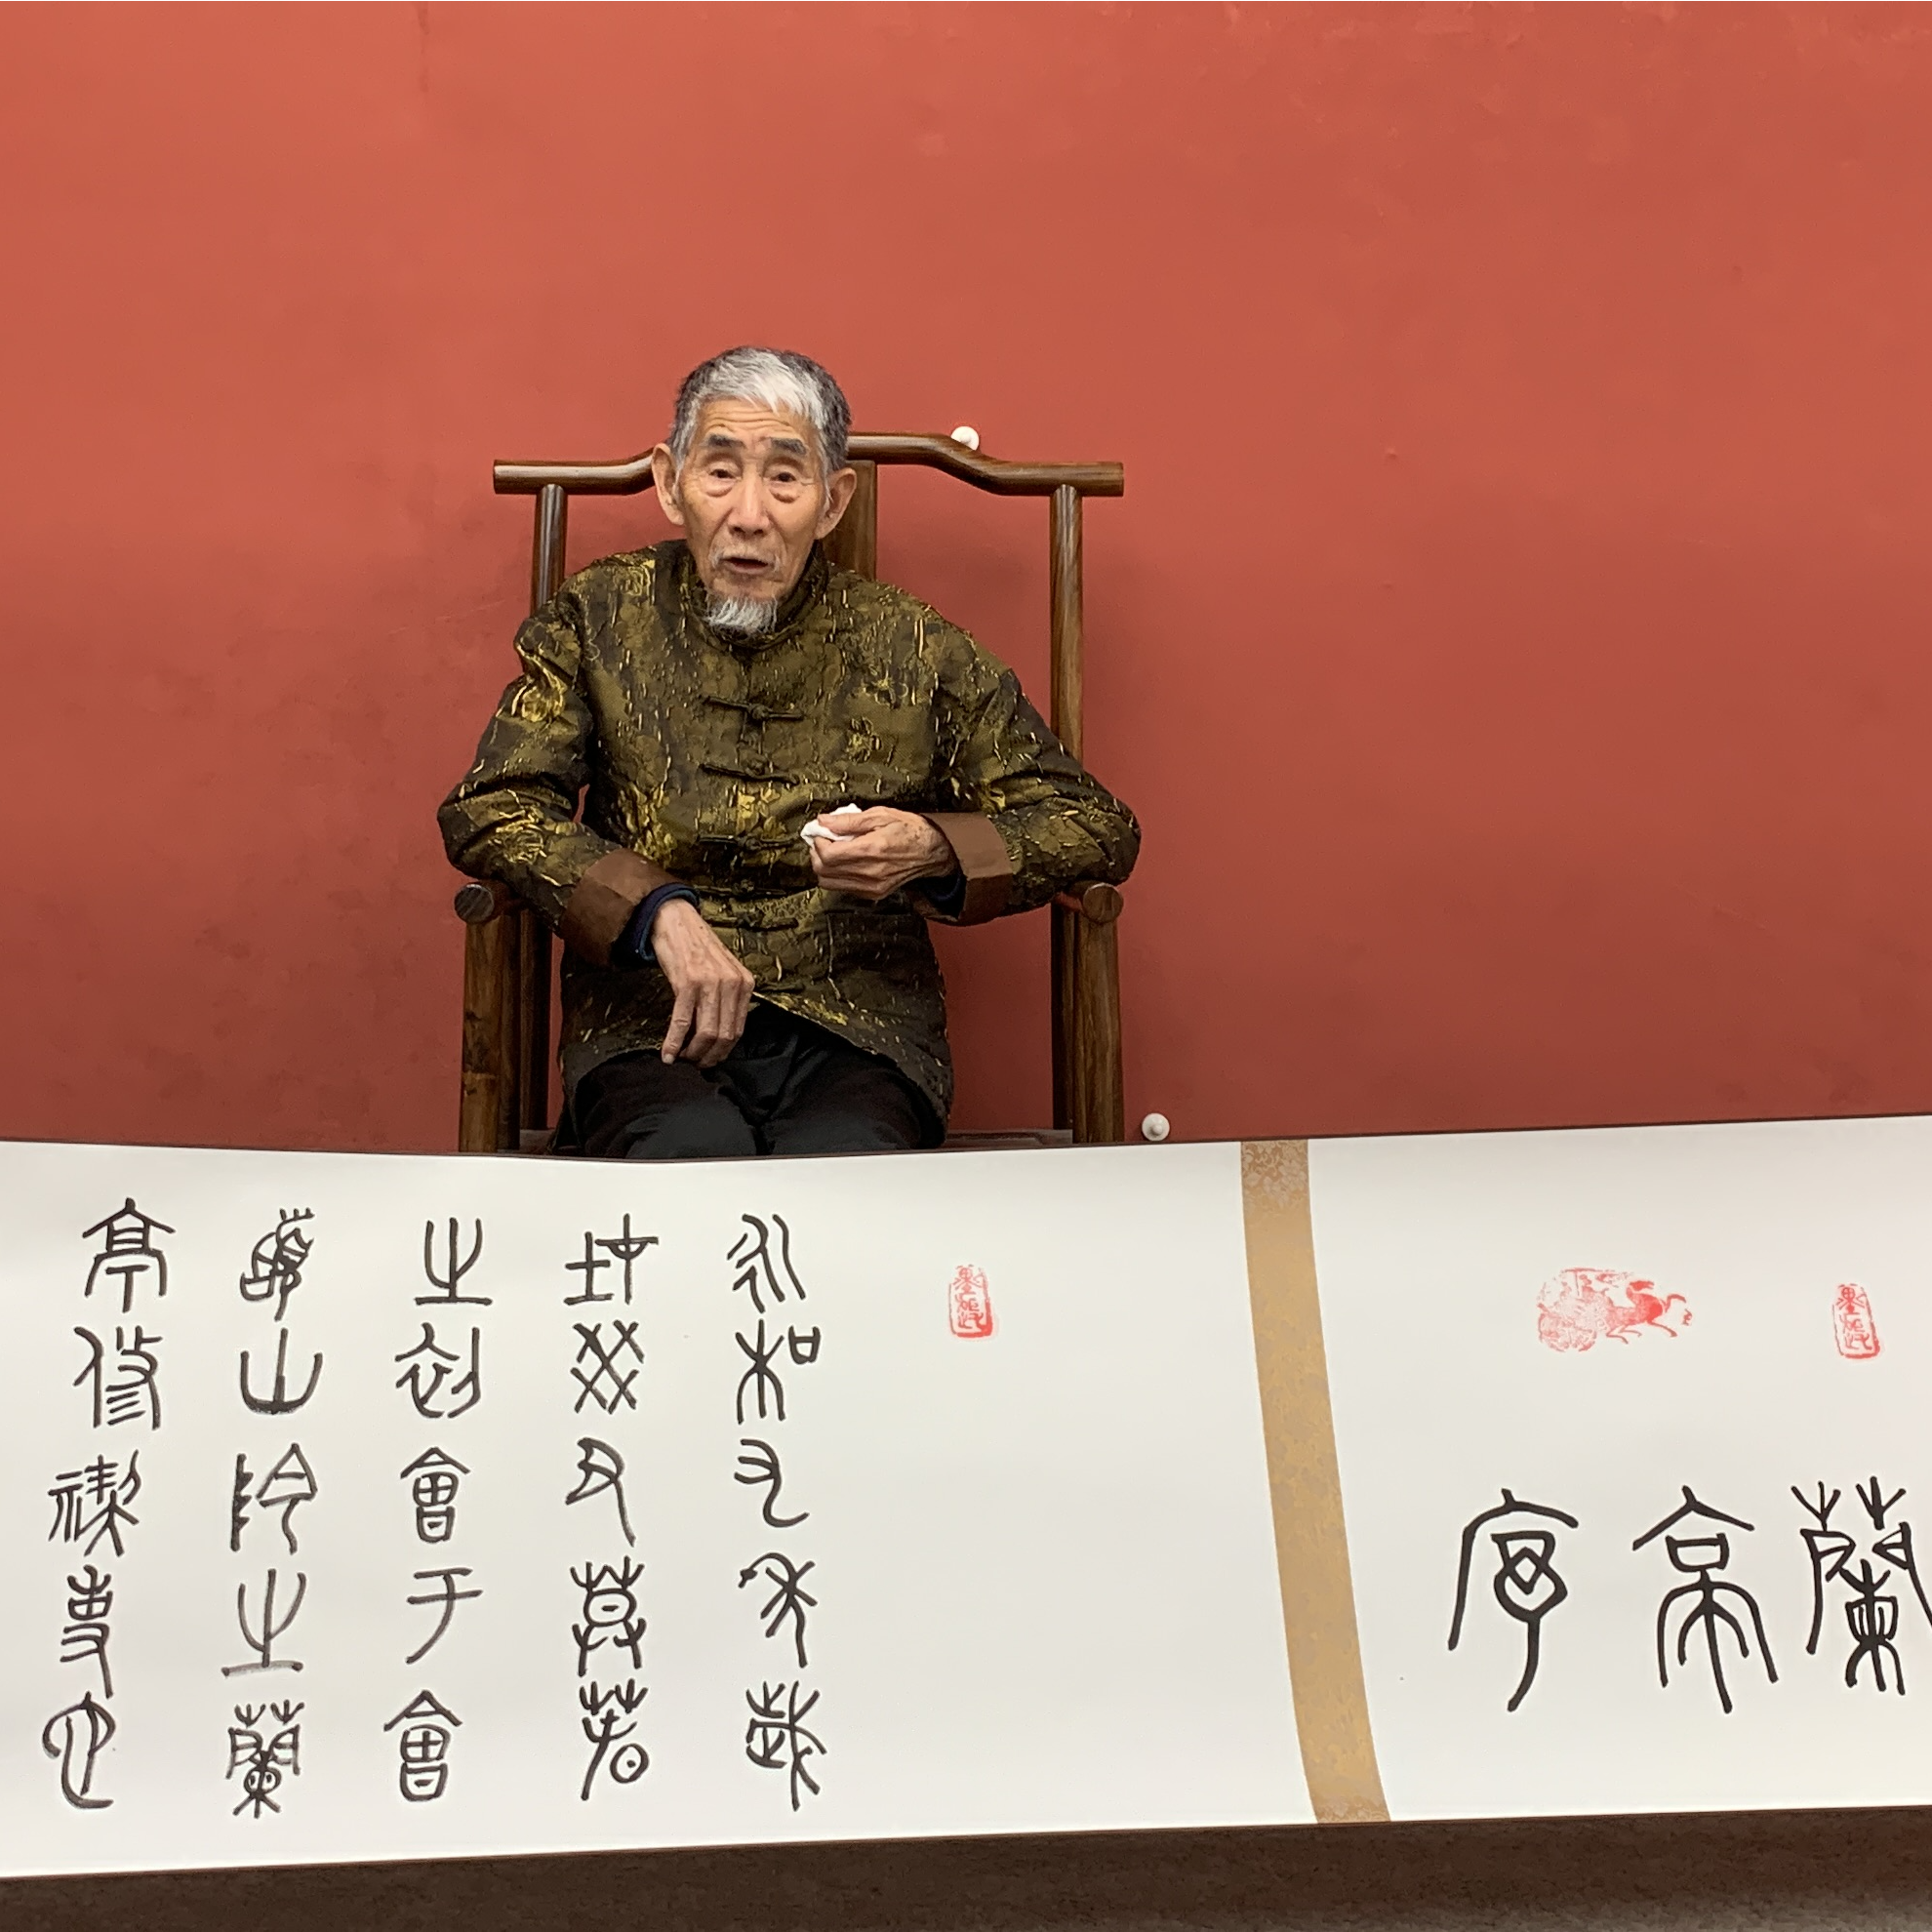 蘭亭序
永和九年歲
在癸丑暮春
之初會于會
稽山陰之蘭
亭修禊事也